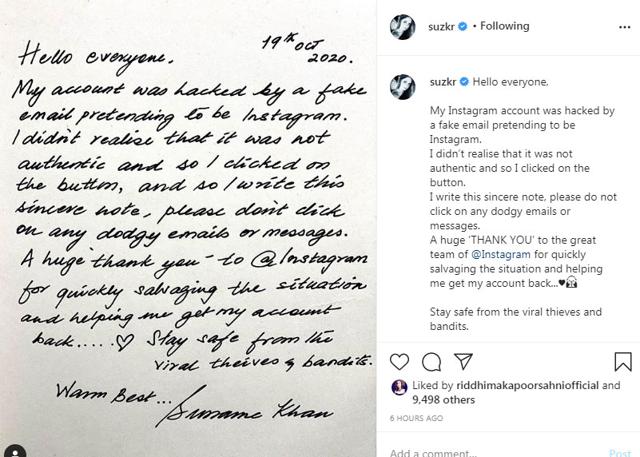 19th Oct
2020.
Hello everyone,
My account was hacked by a fake
email pretending to be Instagram.
I didn't realise that it was not
authentic and so I clicked on
the button, and so I write this
sincere note, please don't click
on any dodgy emails or messages.
A huge thank you - to @Instagram
for quickly salvaging the situation
and helping me get my account
back.....♡ Stay safe from the
viral theives & bandits.
Warm Best...
Sussanne Khan
suzkr • Following
suzkr Hello everyone,
My Instagram account was hacked by
a fake email pretending to be
Instagram.
I didn't realise that it was not
authentic and so I clicked on the
button.
I write this sincere note, please do not
click on any dodgy emails or
messages.
A huge 'THANK YOU' to the great
team of @Instagram for quickly
salvaging the situation and helping
me get my account back...♥️
Stay safe from the viral thieves and
bandits.
Liked by riddhimakapoorsahniofficial and
9,498 others
6 HOURS AGO
Add a comment...
Post